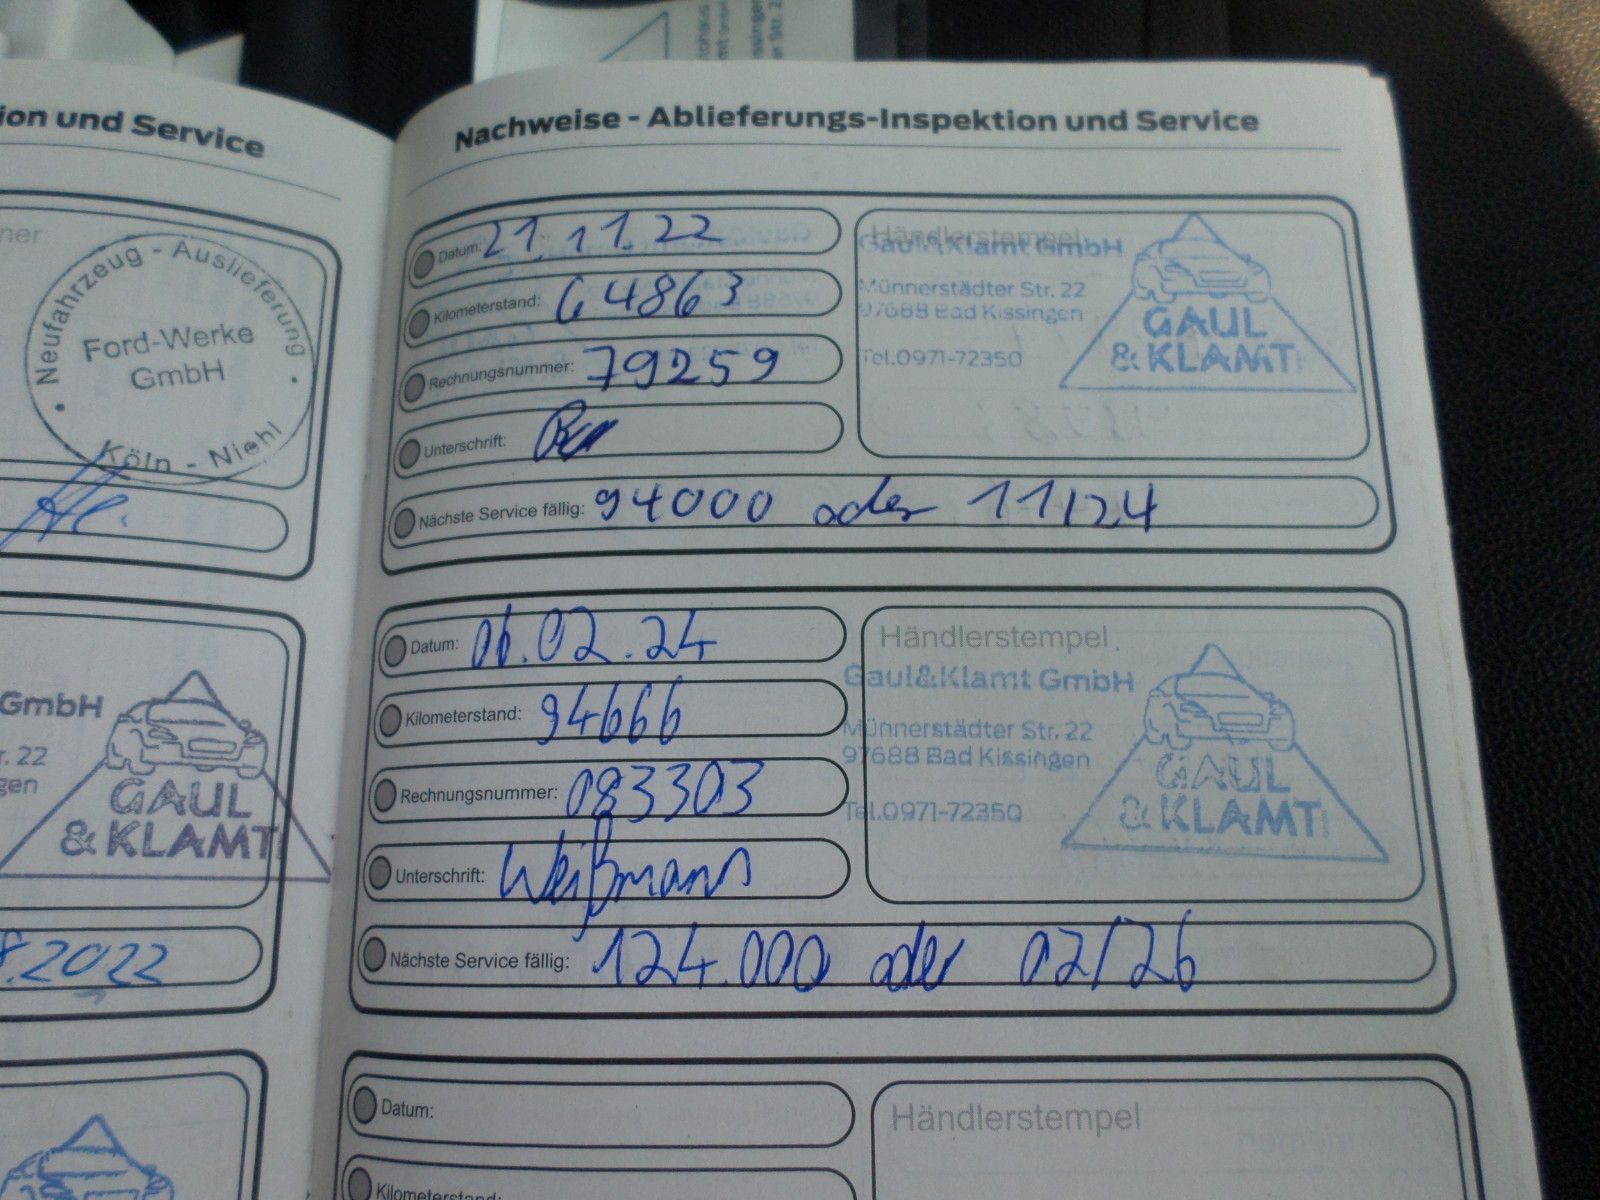 ion und Service
ner
Neufahrzeug - Auslieferung
Ford-Werke
GmbH
Köln - Niehl
GmbH
r. 22
gen
GAUL
& KLAMT
.2022
Nachweise - Ablieferungs-Inspektion und Service
Datum: 21.11.22
Kilometerstand: 64863
Rechnungsnummer: 79259
Unterschrift:
Nächste Service fällig: 94000 oder 11/24
Händlerstempel
Gaul&Klamt GmbH
Münnerstädter Str. 22
97688 Bad Kissingen
Tel.0971-72350
GAUL
& KLAMT
Datum: 06.02.24
Kilometerstand: 94666
Rechnungsnummer: 083303
Unterschrift: Weißmann
Nächste Service fällig: 124.000 oder 02/26
Händlerstempel
Gaul&Klamt GmbH
Münnerstädter Str. 22
97688 Bad Kissingen
Tel.0971-72350
GAUL
& KLAMT
Datum:
Kilometerstand:
Händlerstempel